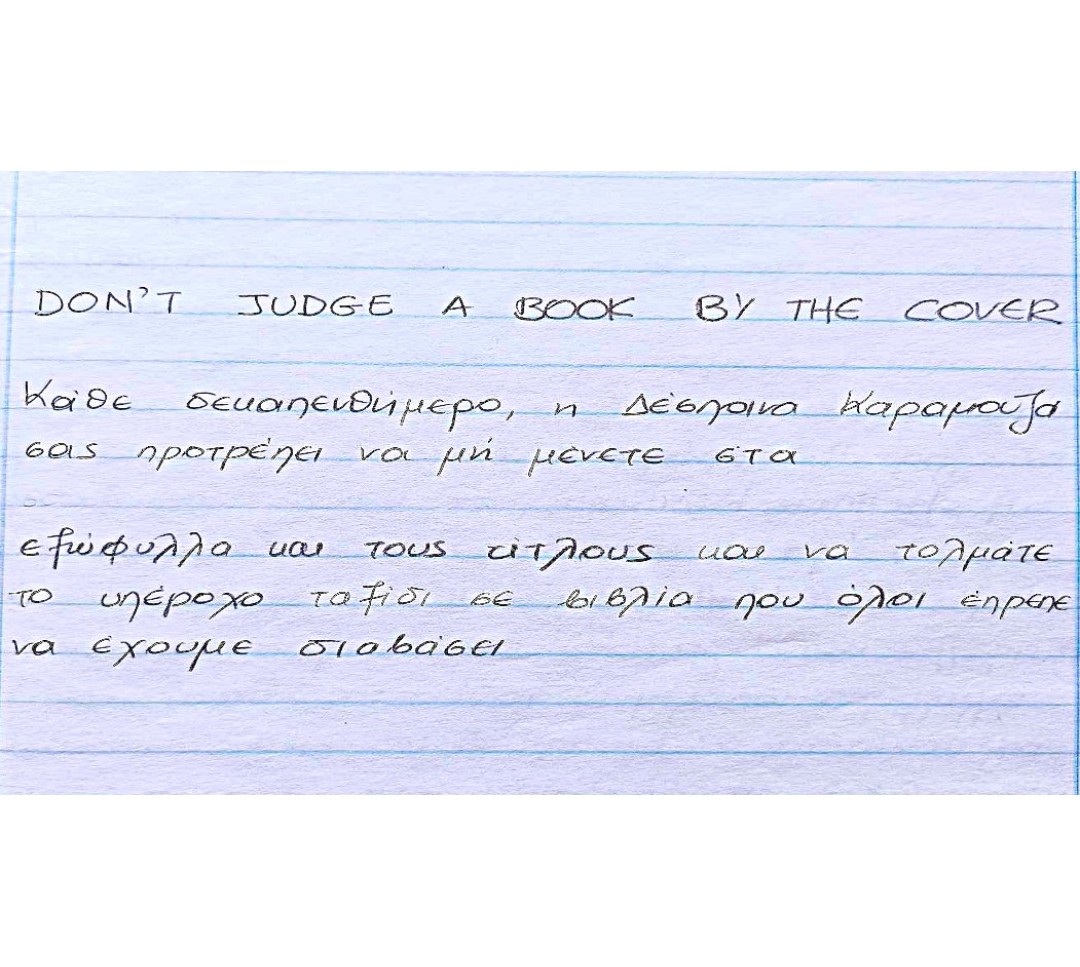 DON'T JUDGE A BOOK BY THE COVER
Κάθε δεκαπενθήμερο, η Δέσποινα Καραμούζα
σας προτρέπει να μή μένετε στα
εξώφυλλα και τους τίτλους και να τολμάτε
το υπέροχο ταξίδι σε βιβλία που όλοι έπρεπε
να έχουμε διαβάσει